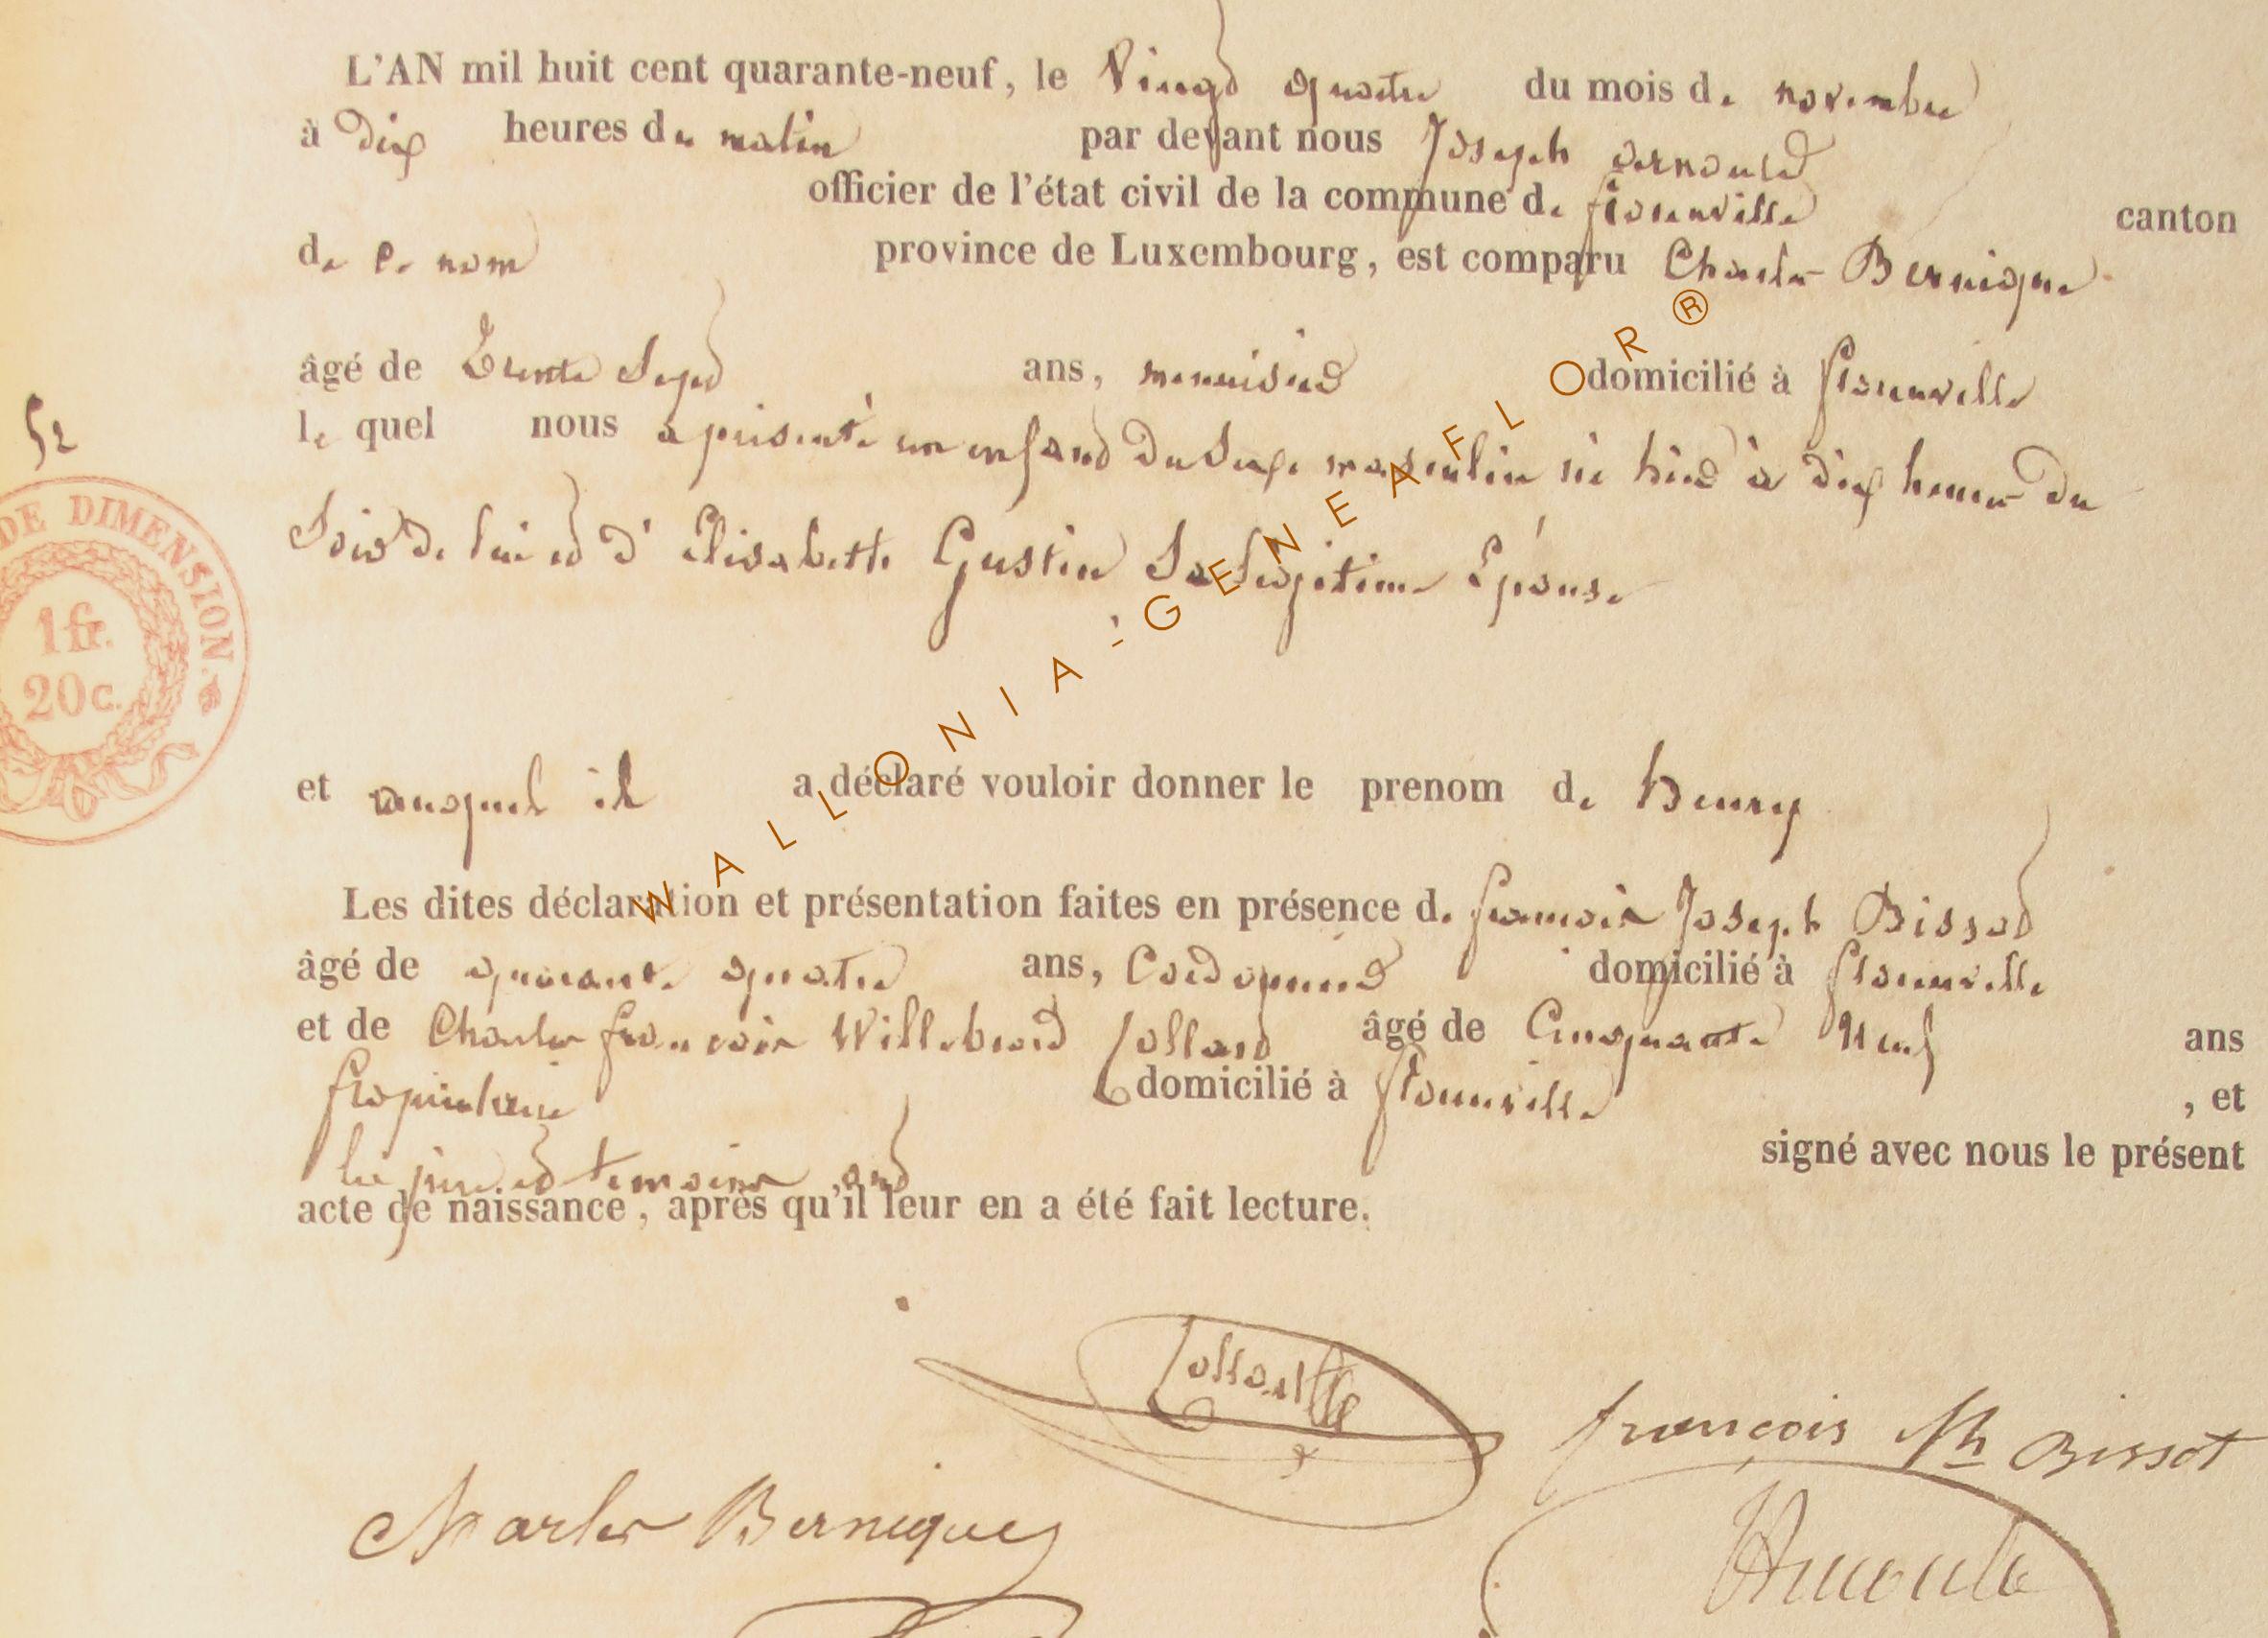 L'AN mil huit cent quarante-neuf, le Vingt quatre du mois de novembre
à dix heures du matin par devant nous Joseph arnould
officier de l'état civil de la commune de florenville canton
de ce nom province de Luxembourg, est comparu Charles Bernique
âgé de Trente Sept ans, menuisier domicilié à florenville
le quel nous a présenté un enfant du Sexe masculin né hier à dix heures du
52
DE DIMENSION.
1 fr.
20 c.
Soir de lui et d'Elisabeth Gustin Sa légitime Epouse
WALLONIA-GENEAFLOR®
et auquel il a déclaré vouloir donner le prenom de henry
Les dites déclaration et présentation faites en présence de francois Joseph Bissot
âgé de quarante quatre ans, Cordonnier domicilié à florenville
et de Charles francois Willebrord Collard âgé de Cinquante Neuf ans
propriétaire domicilié à florenville, et
les père et temoins ont signé avec nous le présent
acte de naissance, après qu'il leur en a été fait lecture.
Collard
françois Jph Bissot
Charles Bernique
Arnould